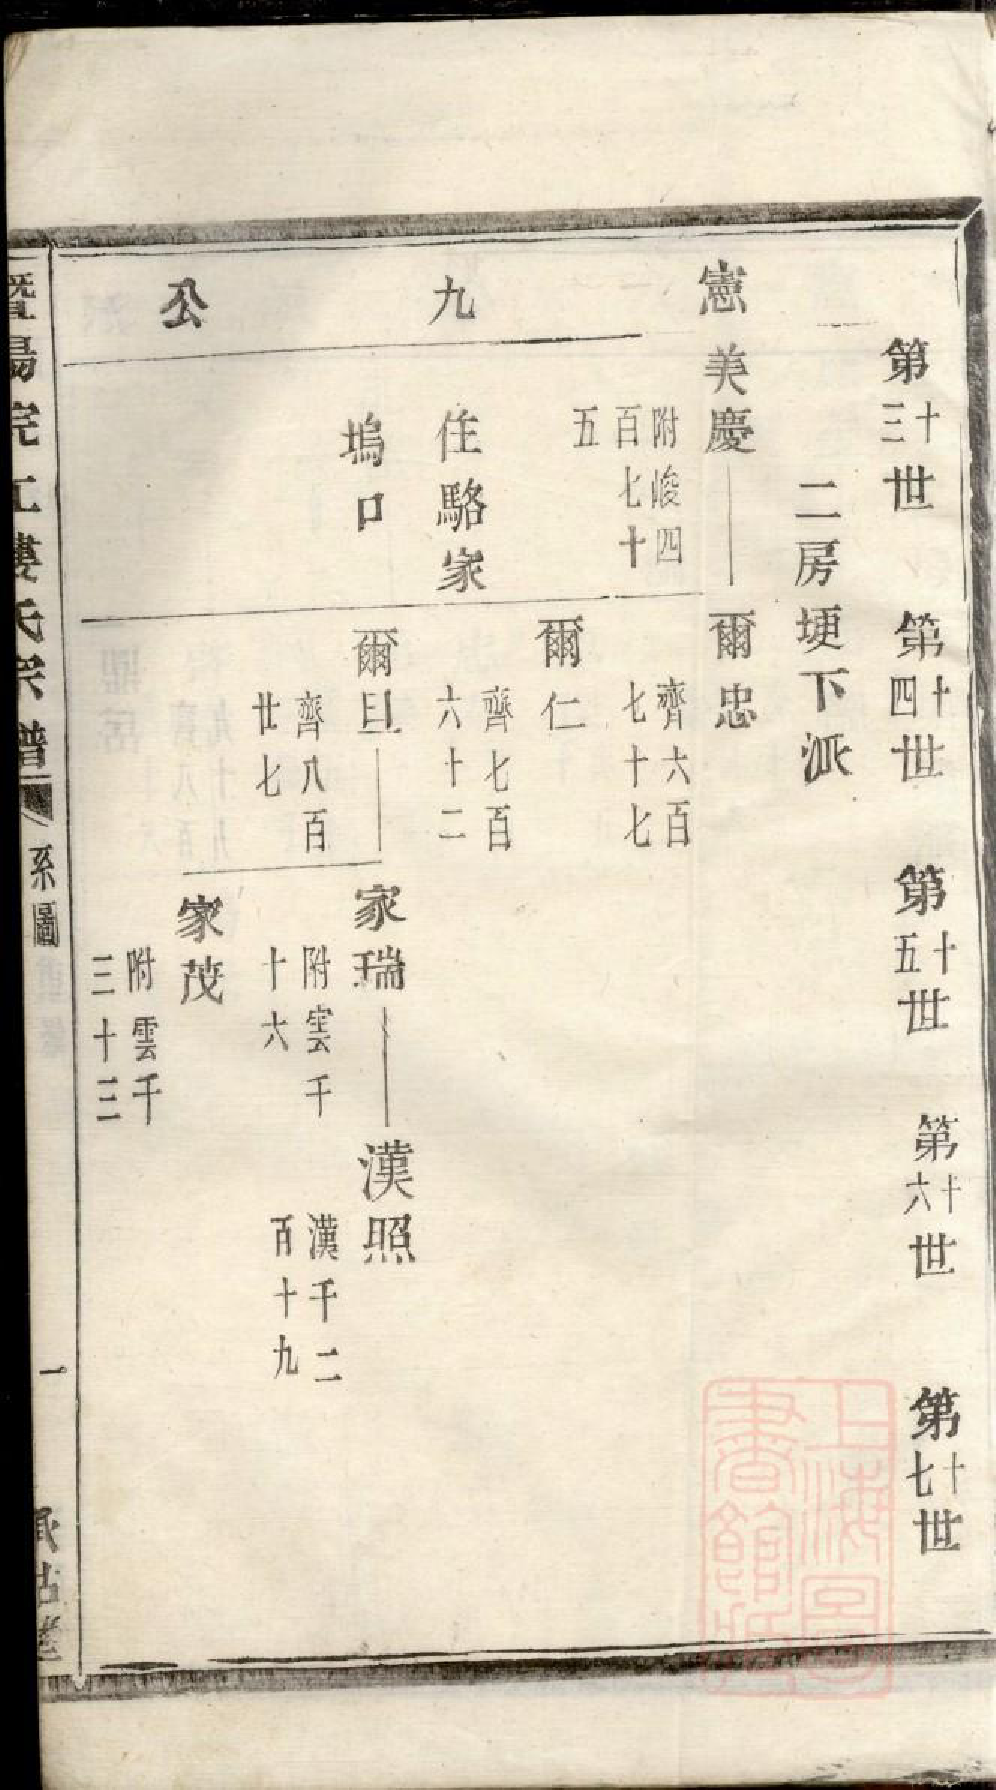 第十三世 第十四世 第十五世 第十六世 第十七世
二房埂下派
憲 九 公
美慶 爾忠
附峻四
百七十
五
齊六百
七十七
住駱家
塢口
爾仁
齊七百
六十二
爾旦 家瑞 漢照
齊八百
廿七
附雲千
十六
漢千二
百十九
家茂
附雲千
三十三
暨陽浣江婁氏宗譜 系圖 一
上海圖書館藏